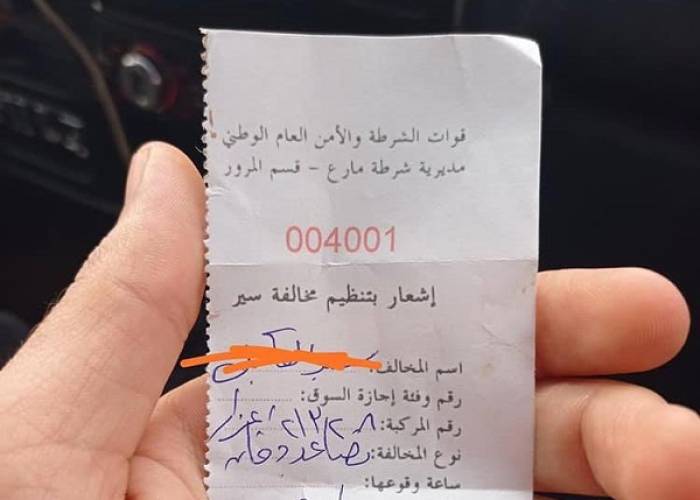 قوات الشرطة والأمن العام الوطني
مديرية شرطة مارع - قسم المرور
004001
إشعار بتنظيم مخالفة سير
اسم المخالف:
رقم وفئة إجازة السوق:
رقم المركبة: اعزاز
نوع المخالفة: تصاعد دخان
ساعة وقوعها: